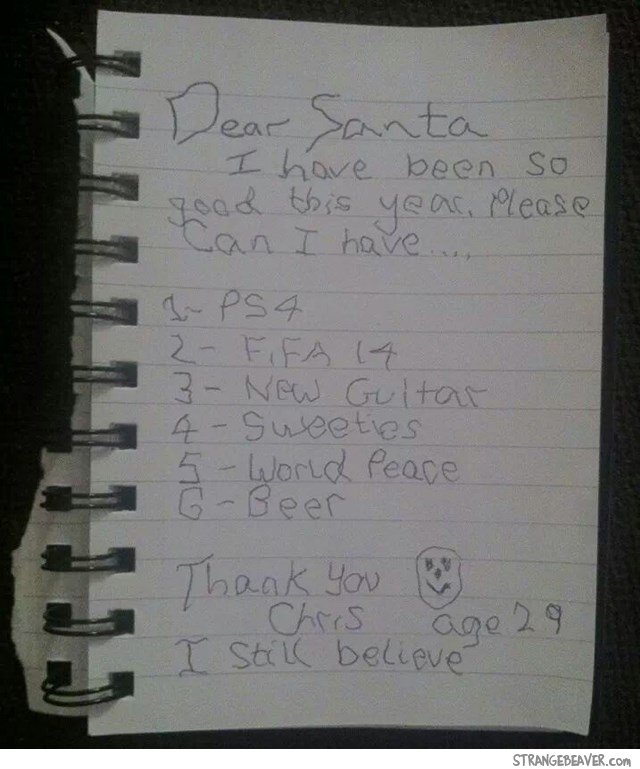 Dear Santa
I have been so
good this year. Please
Can I have....
1- PS4
2- FiFA 14
3- New Guitar
4- Sweeties
5- World Peace
6- Beer
Thank You
Chris age 29
I still believe
STRANGEBEAVER.com